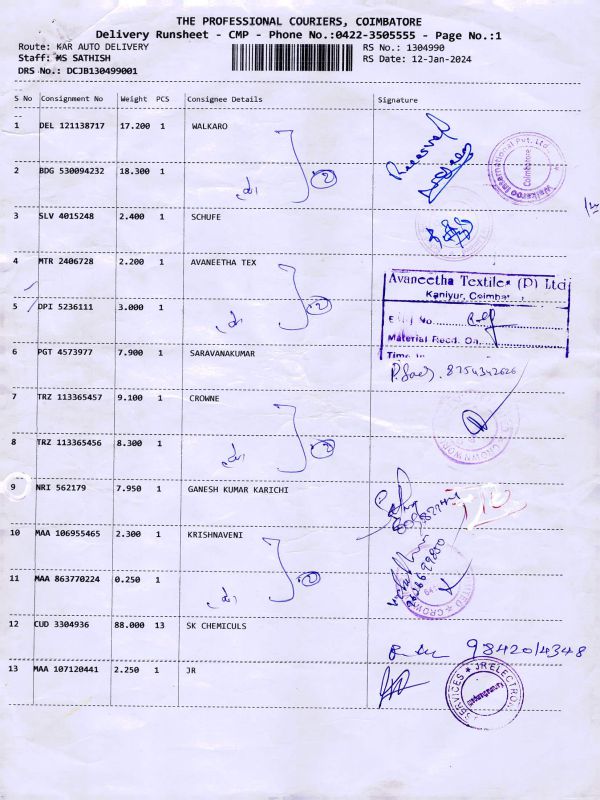 THE PROFESSIONAL COURIERS, COIMBATORE
Delivery Runsheet - CMP - Phone No.:0422-3505555 - Page No.:1
Route: KAR AUTO DELIVERY RS No.: 1304990
Staff: MS SATHISH RS Date: 12-Jan-2024
DRS No.: DCJB130499001
S No Consignment No Weight PCS Consignee Details Signature
1 DEL 121138717 17.200 1 WALKARO
2 BDG 530094232 18.300 1 2
Walkaroo International Pvt. Ltd.
Coimbatore
3 SLV 4015248 2.400 1 SCHUFE
4 MTR 2406728 2.200 1 AVANEETHA TEX
Avaneetha Textiles (P) Ltd
Kaniyur, Coimbat
5 DPI 5236111 3.000 1 2
No.
Material Recd. On
Time in
6 PGT 4573977 7.900 1 SARAVANAKUMAR
8754342626
7 TRZ 113365457 9.100 1 CROWNE
8 TRZ 113365456 8.300 1 2
9 NRI 562179 7.950 1 GANESH KUMAR KARICHI
10 MAA 106955465 2.300 1 KRISHNAVENI
11 MAA 863770224 0.250 1 2
12 CUD 3304936 88.000 13 SK CHEMICULS
9842014348
13 MAA 107120441 2.250 1 JR
JR ELECTRON
SERVICES